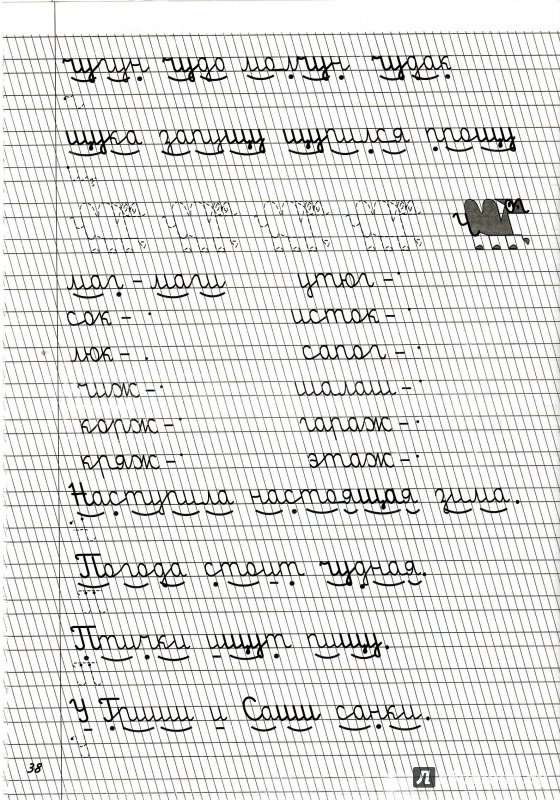 чугун чудо молчун чудак
щука запущу щурился прощу
маг - маги утюг -
сок - исток -
люк - сапог -
чиж - шалаш -
корж - гараж -
кряж - этаж -
Наступила настоящая зима.
Погода стоит чудная.
Птички ищут пищу.
У Гриши и Саши санки.
38
Л